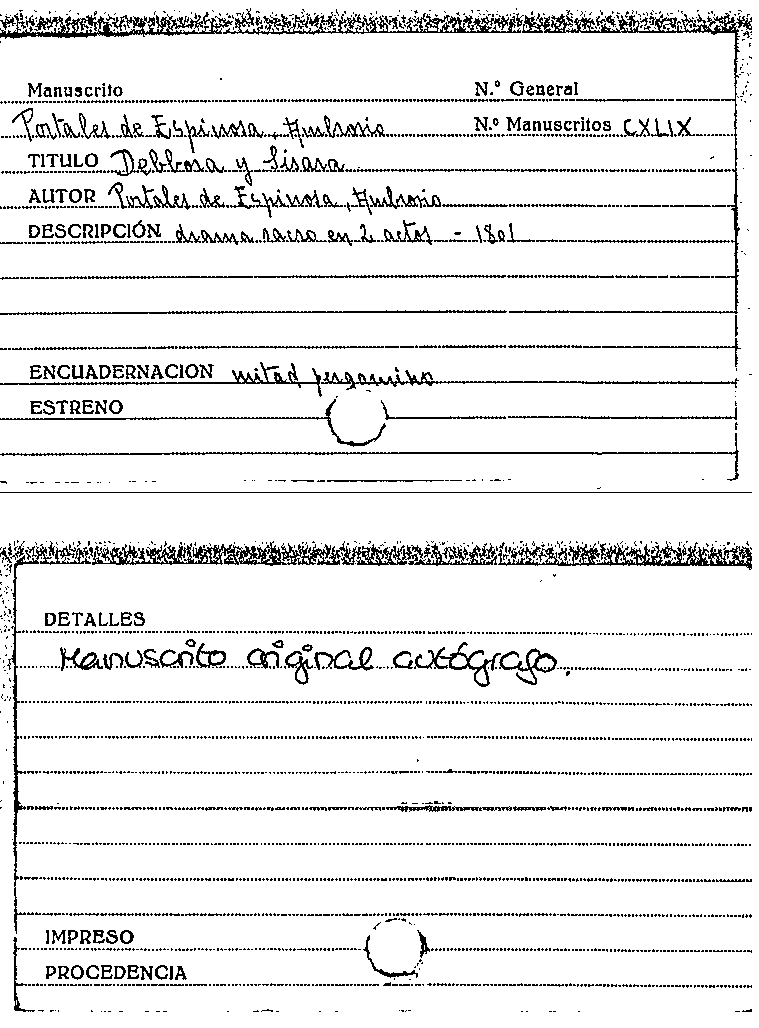 Manuscrito N.º General
Portales de Espinosa, Ambrosio N.º Manuscritos CXLIX
TITULO Debbora y Sisara
AUTOR Portales de Espinosa, Ambrosio
DESCRIPCIÓN drama sacro en 2 actos - 1801
ENCUADERNACION mitad pergamino
ESTRENO
DETALLES
Manuscrito original autógrafo.
IMPRESO
PROCEDENCIA